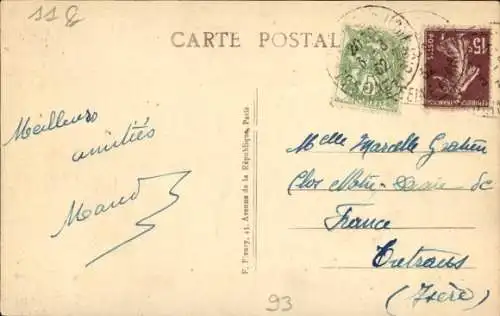 118
CARTE POSTALE
Meilleurs
amitiés
Maud
F. Fleury, 41, Avenue de la République, Paris
5c
15c
POSTES
Melle Marcelle Gratien
Clos Notre-Dame de
France
Entraus
(Isère)
93